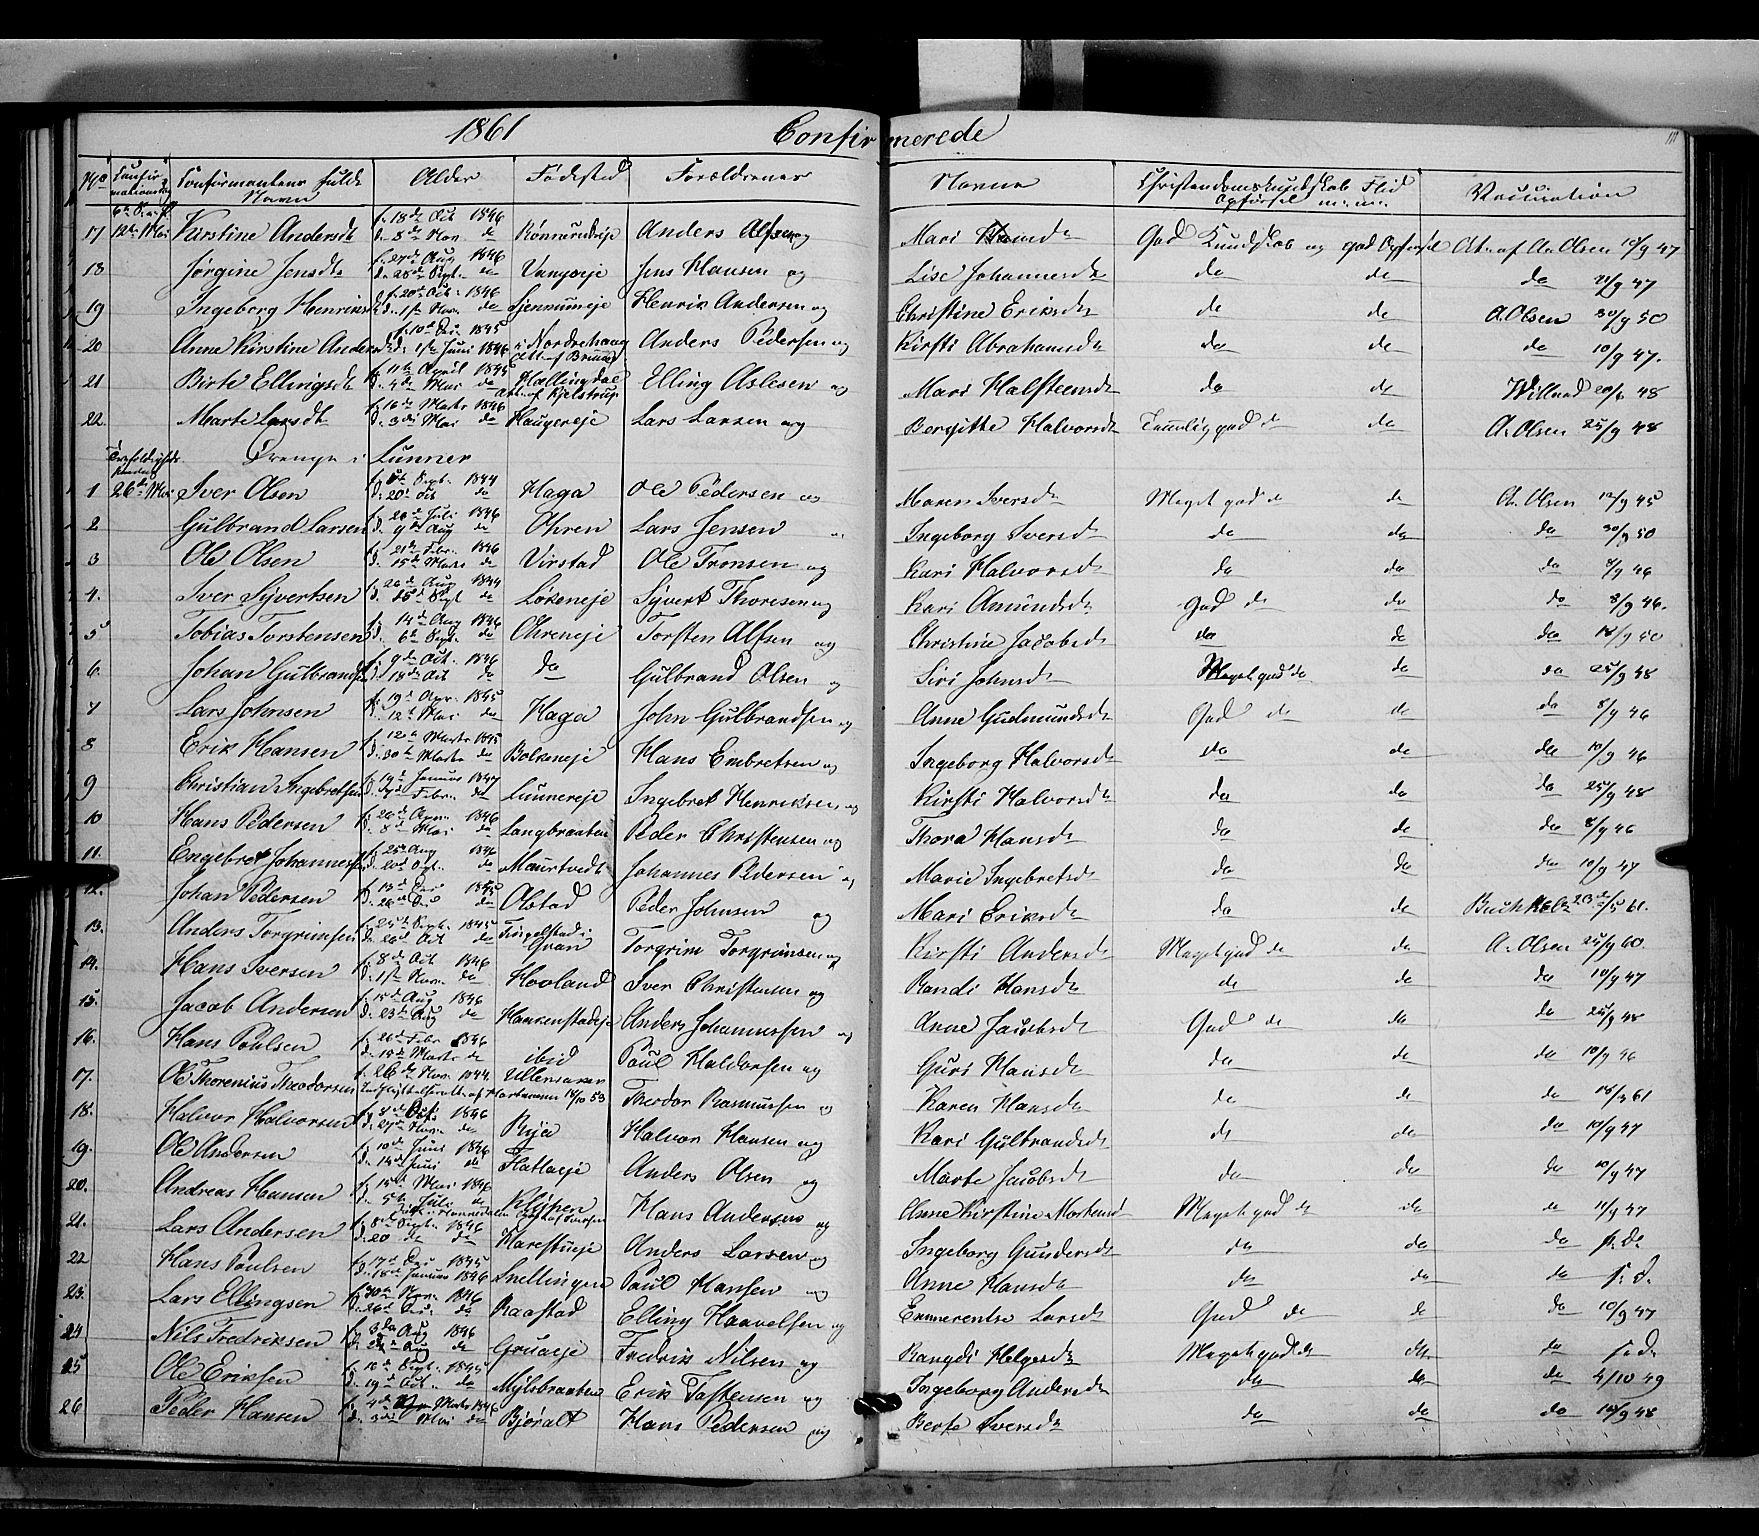 1861 Confirmerede
No Confirmationsdag Confirmantens fulde Navn Alder Fødested Forældrenes Navne Christendomskundskab Flid Opførsel m.m. Vaccination
17 12te Mai Kirstine Andersdt f. 18de Oct 1846 d. 8de Nov. do Anders Alfsen og Mari God Kundskab og god Opførsel At. af A. Olsen 10/9 47
18 Jørgine Jensdt f. 27de Aug 1846 d. 28de Sept. do Vangeje Jens Hansen og Lise Johannesdt do do do 47
19 Ingeborg Henriksdt f. 20de Oct. 1846 d. 1ste Nov. do Henrik Andersen og Christine Eriksdt do do A. Olsen 30/9 50
20 Anne Kirstine Andersdt f. 10de 1845 d. 1ste Juni 1846 Nordrehaug Anders Pedersen og Kirsti Abrahamsdt do do do 10/9 47.
21 Birte Ellingsdt f. 11te April 1845 d. 4de Mai do Hallingdal Att. af Kjelstrup Elling Aslesen og Mari Halsteensdt do do 48
22 Marte Larsdt f. 16de Marts 1846 d. 3die Mai do Haugereje Lars Larsen og Bergitte Halvorsdt Temmelig god do do A. Olsen 25/9 48
Drenge i Lunner
1 26de Mai Iver Olsen Sept. 1844 d. 20de Oct do Haga Ole Pedersen og Maren Iversdt Meget god do do A. Olsen 12/9 45
2 Gulbrand Larsen f. 20de Juli 1846 d. 9de Aug do Ohren Lars Jensen og Ingeborg Iversdt do do do 30/9 50
3 Ole Olsen f. 21de Febr. 1846 d. 15de Marts do Virstad Ole Tronsen og Kari Halvorsdt do do do 8/9 46
4. Iver Syvertsen f. 20de Aug 1844 d. 25de Sept do Løkeneje Syvert Thoresen og Kari Amundsdt God do do do 8/9 46.
5 Tobias Torstensen f. 14de Aug 1846 d. 6te Sept. do Ohreneje Torsten Alfsen og Christine Jacobsdt do do do 18/9 50
6. Johan Gulbrandsen f. 9de Oct. 1846 d. 18de Oct do do Gulbrand Olsen og Siri Johnsdt Meget god do do do 25/9 48
7 Lars Johnsen f. 19de Apr. 1845 d. 12te Mai do Haga John Gulbrandsen og Anne Gudmundsdt God do do do 8/9 46
8 Erik Hansen f. 12te Marts 1845 d. 30te Marts do Bolkeneje Hans Embretsen og Ingeborg Halvorsdt do do do 10/9 46
9 Christian Ingebretsen f. 19de Januar 1847 d. Febr. do Lunnereje Ingebret Henriksen og Kirsti Halvorsdt do do do 25/9 48
10 Hans Pedersen f. 20de Apr. 1846 d. 8de Mai do Langbraaten Peder Christensen og Thora Hansdt do do do 8/9 46
11. Engebret Johannessen f. 25de Aug 1846 d. 20de do Maurtvedt Johannes Pedersen og Marie Ingebretsdt do do do 10/9 47
12. Johan Pedersen f. 13de 1845 d. 26de do Olstad Peder Johnsen og Mari Eriksdt do do 61.
13. Anders Torgrimsen f. 25de Sept. 1845 d. 26de Oct do Tingelstad i Gran Torgrim Torgrimsen og Kirsti Andersdt Meget god do do A. Olsen 25/9 60.
14. Hans Iversen f. 8de Oct 1846 d. 1ste Nov. do Hovland Iver Christensen og Randi Hansdt do do do 10/9 47
15. Jacob Andersen f. 15de Aug 1846 d. 23de Aug do Hankenstadeje Anders Johannessen og Anne Jacobsdt God do do do 25/9 48
16. Hans Poulsen f. 26de Febr 1846 d. 15de Marts do ibid Paul Haldorsen og Guri Hansdt do do do 10/9 46
17. Ole Thorenius Theodorsen f. 26de Nov. 1844. Ullensaker Theodor Rasmussen og Karen Hansdt do do 61
18. Halvor Halvorsen f. 4de Oct. 1846 d. Nov. do Rya Halvor Hansen og Kari Gulbrandsdt do do do 10/9 47
19. Ole Andersen f. 10de Juni 1846 d. 14de Juni do Flattaeje Anders Olsen og Marte Jacobsdt do do do 10/9 47
20. Andreas Hansen f. 15de Mai 1846 d. 5te Juli do Klophen Hans Andersen og Anne Kirstine Mortensdt Meget god do do do 11/9 47
21. Lars Andersen f. 8de Sept. 1846 d. 20de do Harestueje Anders Larsen og Ingeborg Gundersdt do do do s. D.
22 Hans Poulsen f. 17de Dec 1845 d. 18de Januar 1846 Snellingen Paul Hansen og Anne Hansdt do do do s. d.
23. Lars Ellingsen f. 30te Nov. 1846 d. 26de Dec. do Raastad Elling Haavelsen og Emmerentse Larsdt God do do do 10/9 47
24 Nils Fredriksen f. 3die Aug 1846 d. Aug do Gruaeje Fredrik Nilsen og Rangdi Helgesdt Meget god do do do s. d.
25 Ole Eriksen f. 10de Sept. 1845 d. 19de Oct. do Mylsbraaten Erik Tostensen og Ingeborg Andersdt do do do 4/10 49
26 Peder Hansen f. 4de Marts 1846 d. 3die Mai do Bjøralt Hans Pedersen og Berte Iversdt do do do 48